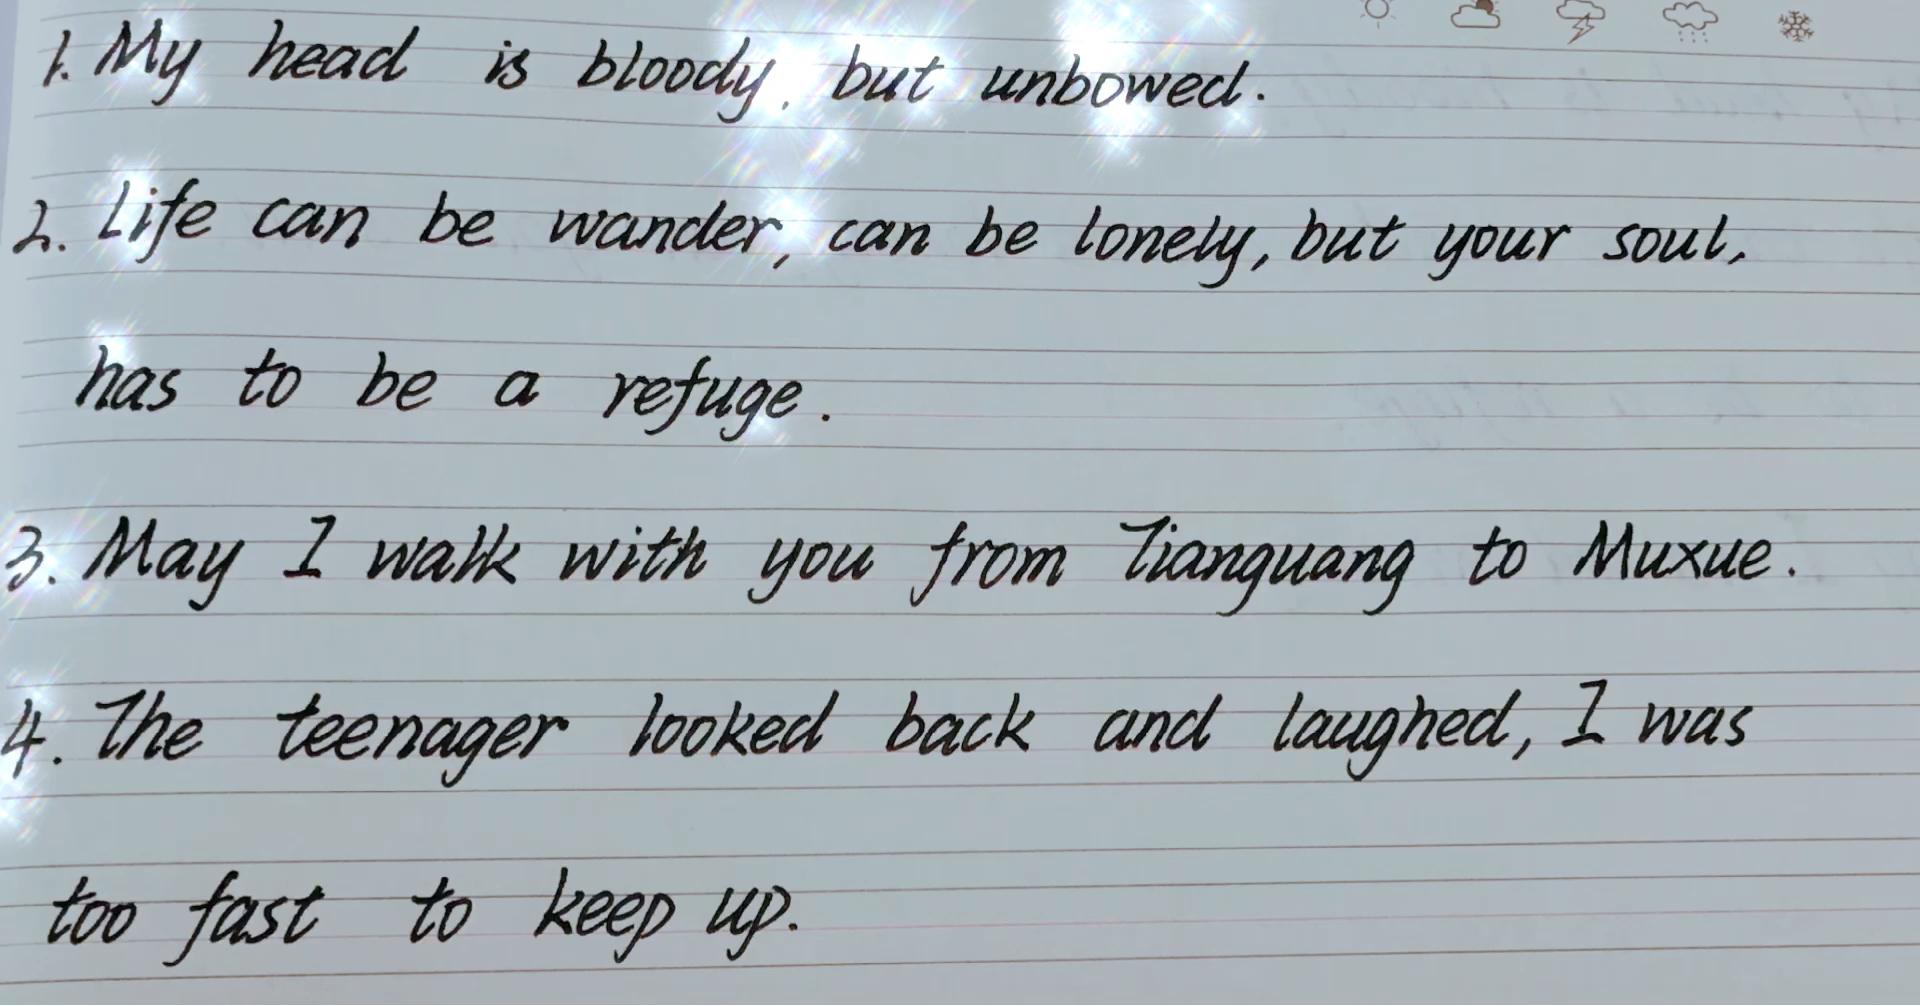 1. My head is bloody, but unbowed.
2. Life can be wander, can be lonely, but your soul,
has to be a refuge.
3. May I walk with you from Tianguang to Muxue.
4. The teenager looked back and laughed, I was
too fast to keep up.